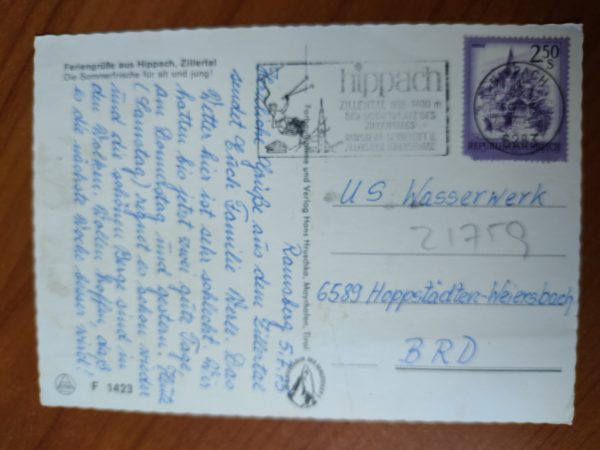 Feriengrüße aus Hippach, Zillertal
Die Sommerfrische für alt und jung!
Ramsberg 5.7.75
Grüße aus dem Zillertal
sendet Euch Familie Well. Das
Wetter hier ist sehr schlecht. Wir
hatten bis jetzt zwei gute Tage,
am Donnerstag und gestern. Heute
(Samstag) regnet es schon wieder
und die schönen Berge sind in
den Wolken. Wollen hoffen, daß
es die nächste Woche besser wird!
F 1423
und Verlag Hans Hruschka, Mayrhofen, Tirol
hippach
ZILLERTAL 600-1400 m
2.50
S
REPUBLIK ÖSTERREICH
6283
US Wasserwerk
21759
6589 Hoppstädten-Weiersbach
BRD